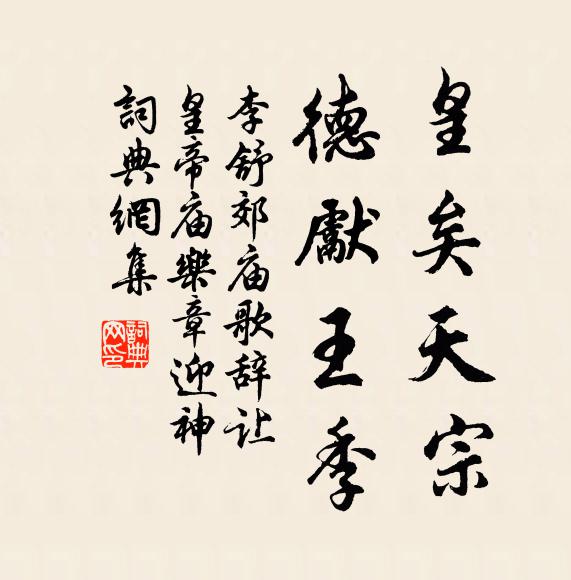 皇矣天宗
德獻王季
李舒郊庙歌辞让
皇帝庙樂章迎神
詞典網集
詞典网印